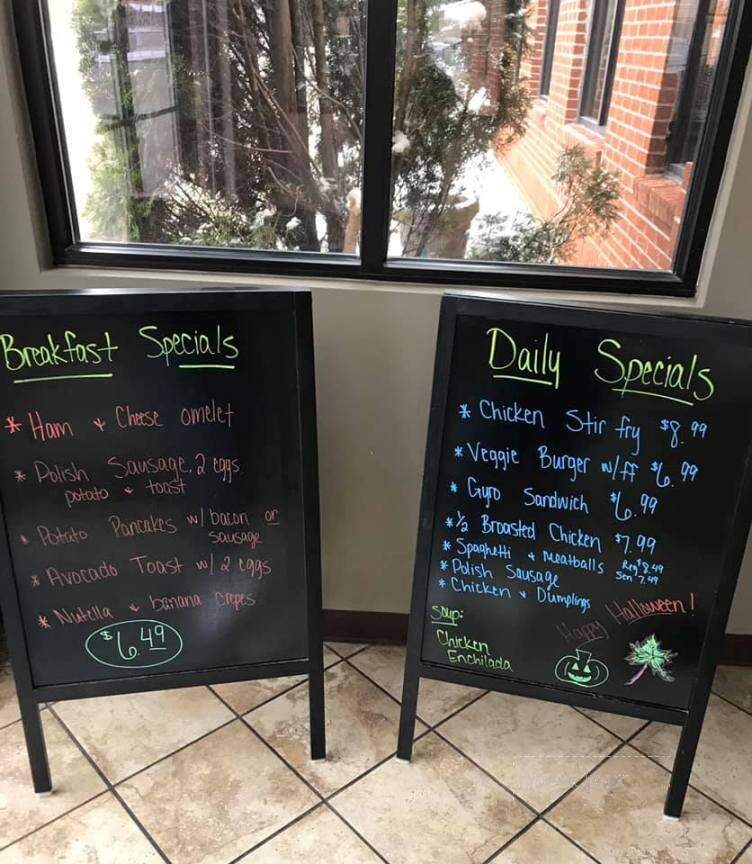 Breakfast Specials
* Ham & Cheese omelet
* Polish Sausage, 2 eggs
potato & toast
* Potato Pancakes w/ bacon or
sausage
* Avocado Toast w/ 2 eggs
* Nutella & banana crepes
$6.49
Daily Specials
* Chicken Stir fry $8.99
* Veggie Burger w/ff $6.99
* Gyro Sandwich $6.99
* 1/2 Broasted Chicken $7.99
* Spaghetti & meatballs Reg $8.49
Sen 7.49
* Polish Sausage
* Chicken & Dumplings
Soup:
Chicken
Enchilada
Happy Halloween!